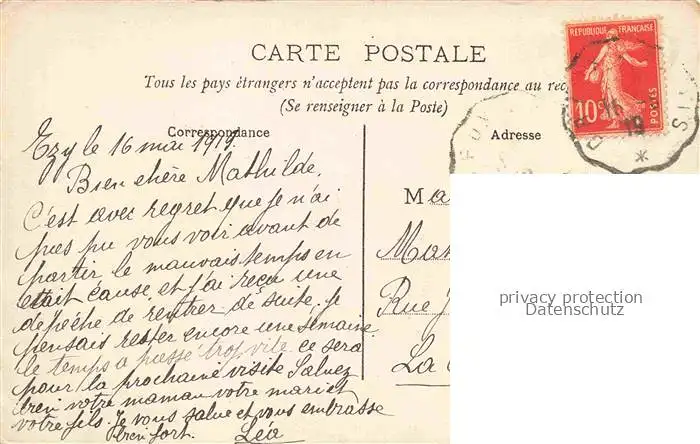 CARTE POSTALE
Tous les pays étrangers n'acceptent pas la correspondance au rec
(Se renseigner à la Poste)
Correspondance
Ezy le 16 mai 1919.
Bien chère Mathilde,
C'est avec regret que je n'ai
pas pu vous voir avant de
partir le mauvais temps en
était cause, et j'ai reçu une
depêche de rentrer de suite. je
pensais rester encore une semaine
le temps a passé trop vite ce sera
pour la prochaine visite Saluez
bien votre maman votre mari et
votre fils. Je vous salue et vous embrasse
bien fort. Léa
Adresse
Ma
Rue
La
RÉPUBLIQUE FRANÇAISE
10c
POSTES
19
privacy protection
Datenschutz